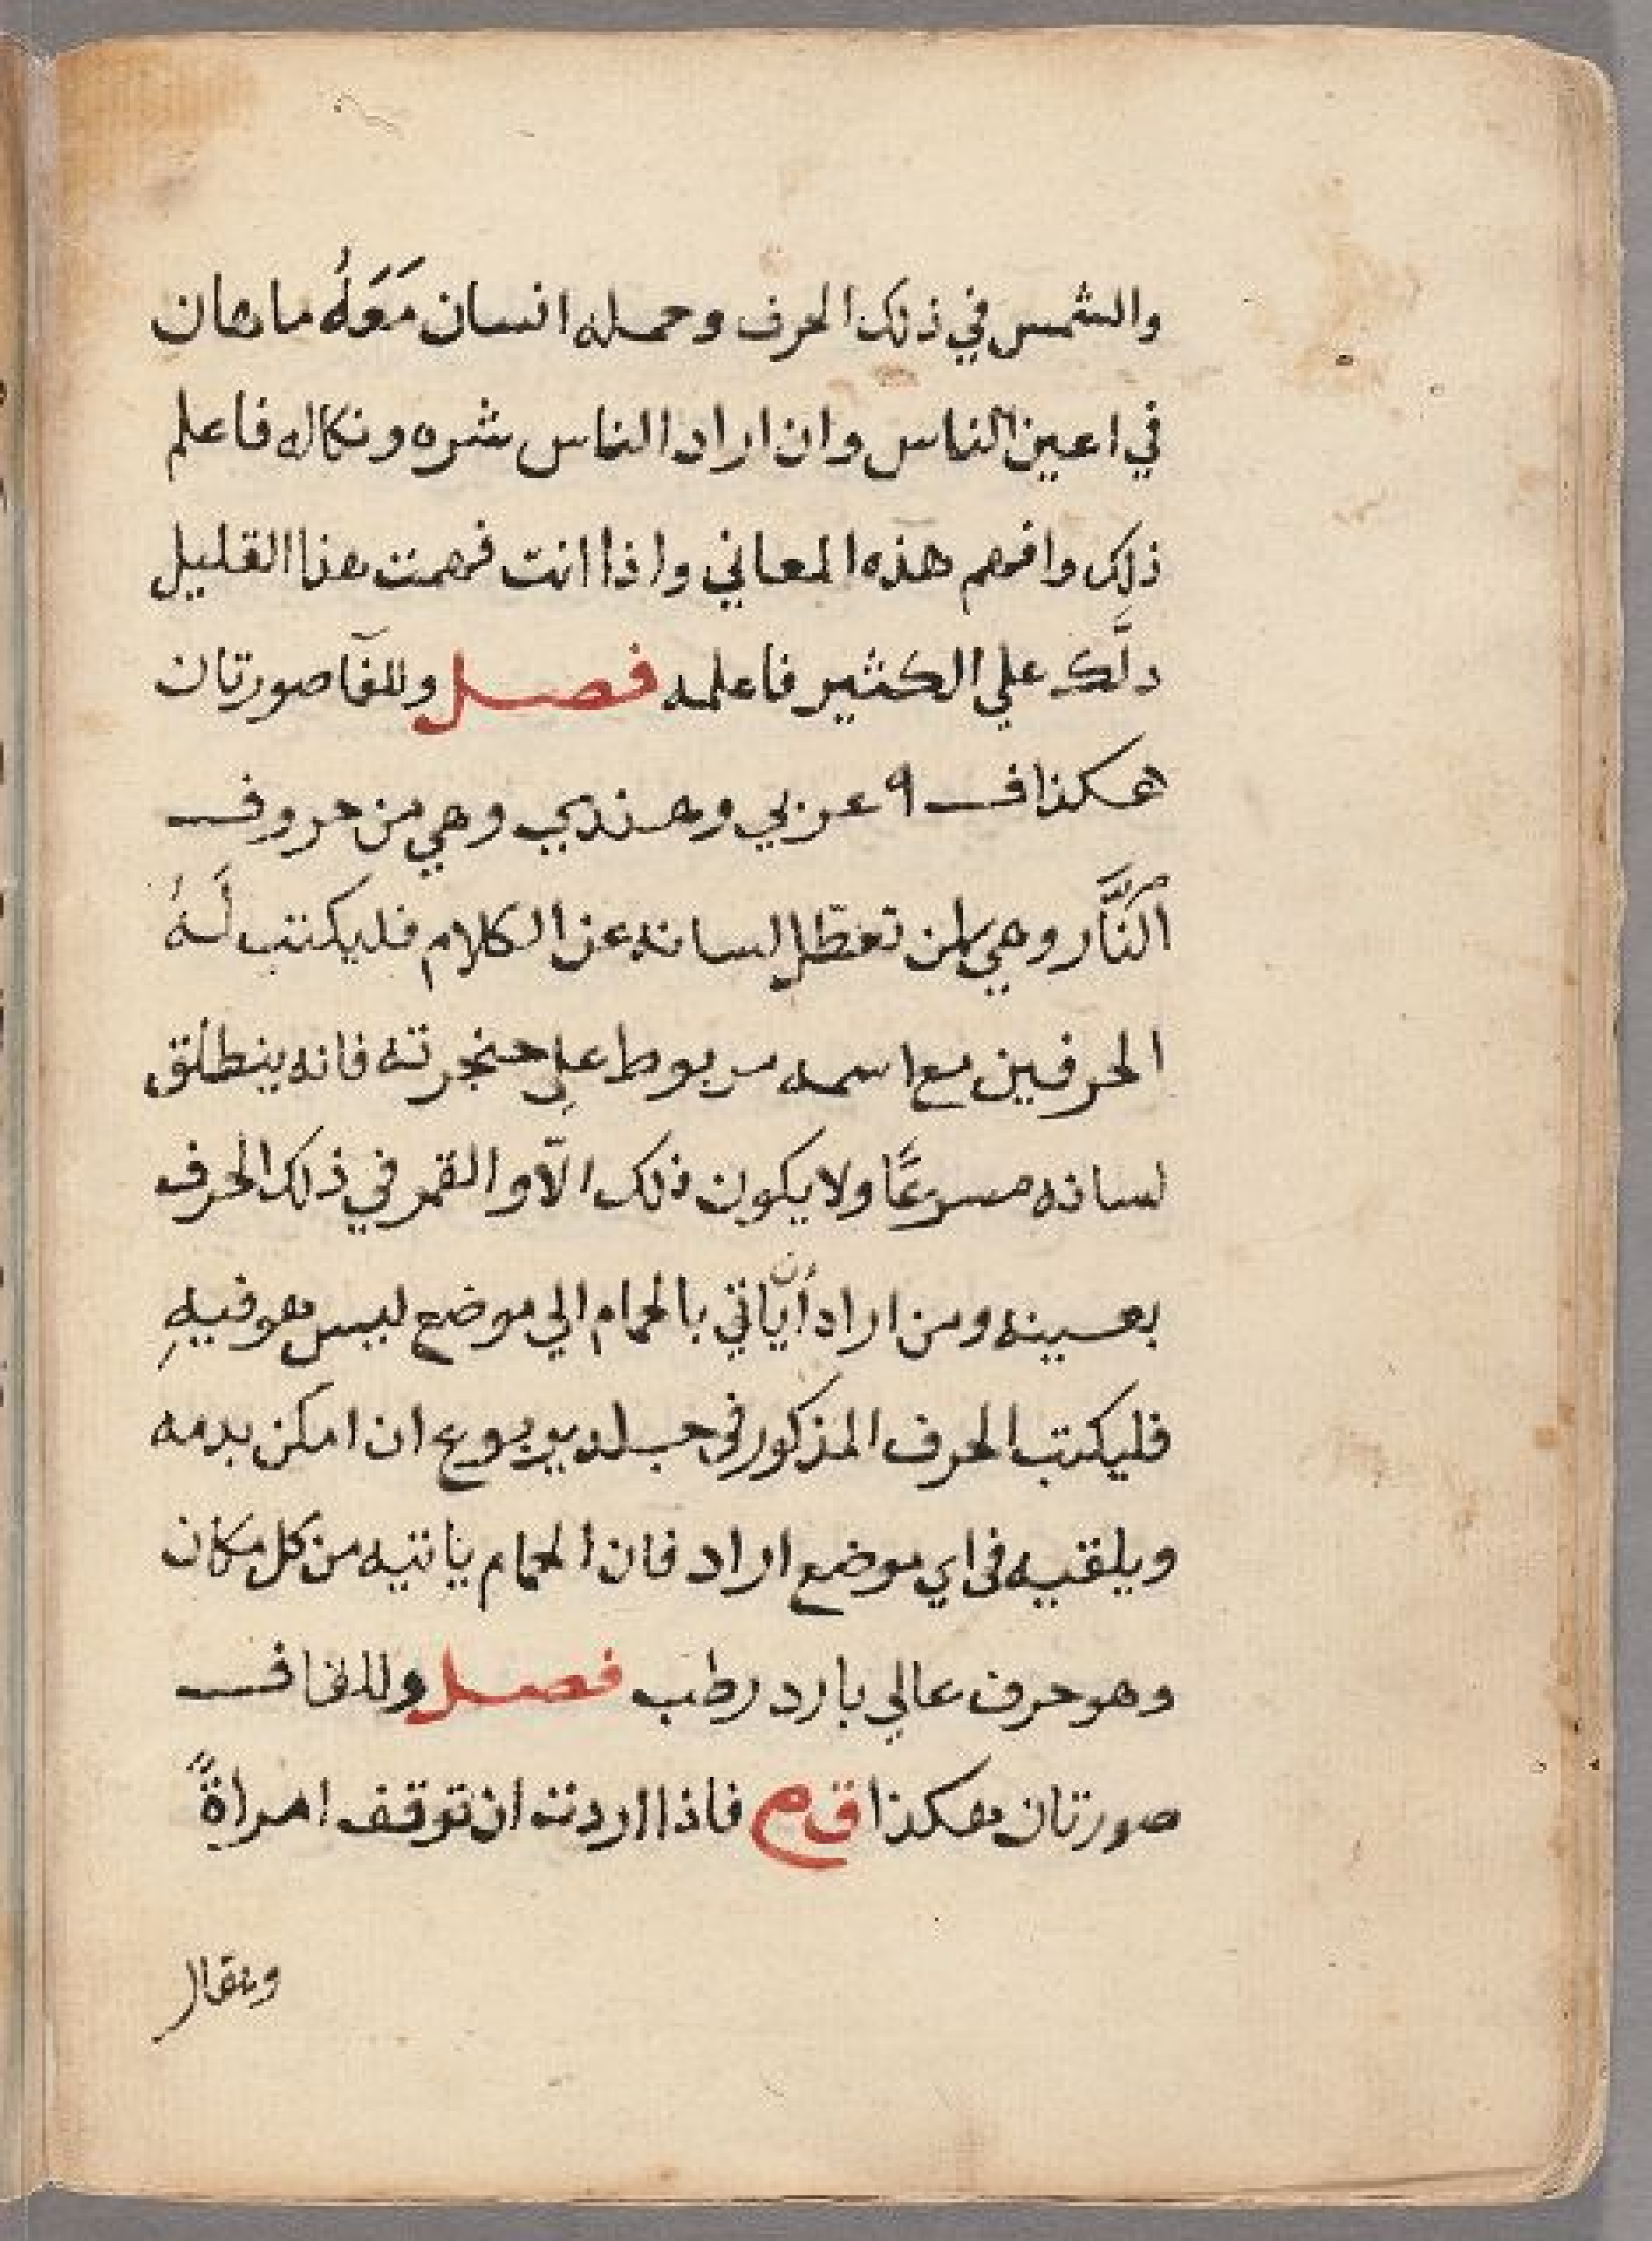 والشمس في ذلك الحرف وحمله انسان مَعَهُ ما هان
في اعين الناس وان اراد الناس شره ونكاله فاعلم
ذلك وافهم هذه المعاني واذا انت فهمت هذا القليل
دلَّك علي الكثير فاعلمه فصل وللفآ صورتان
هكذا ف ٩ عربي وهندي وهي من حروف
النَّار وهي لمن تعطّل لسانه عن الكلام فليكتب لَهُ
الحرفين مع اسمه مربوط علي حنجرته فانه ينطلق
لسانه مسرعًا ولا يكون ذلك الاّ والقمر في ذلك الحرف
بعينه ومن اراد أن ياتي بالحمام الي موضع ليس هو فيهِ
فليكتب الحرف المذكور في جلد يربوع ان امكن بدمه
ويلقيه في اي موضع اراد فان الحمام ياتيه من كل مكان
وهو حرف عالي بارد رطب فصل وللقاف
صورتان هكذا ق م فاذا اردت ان توقف امراةً